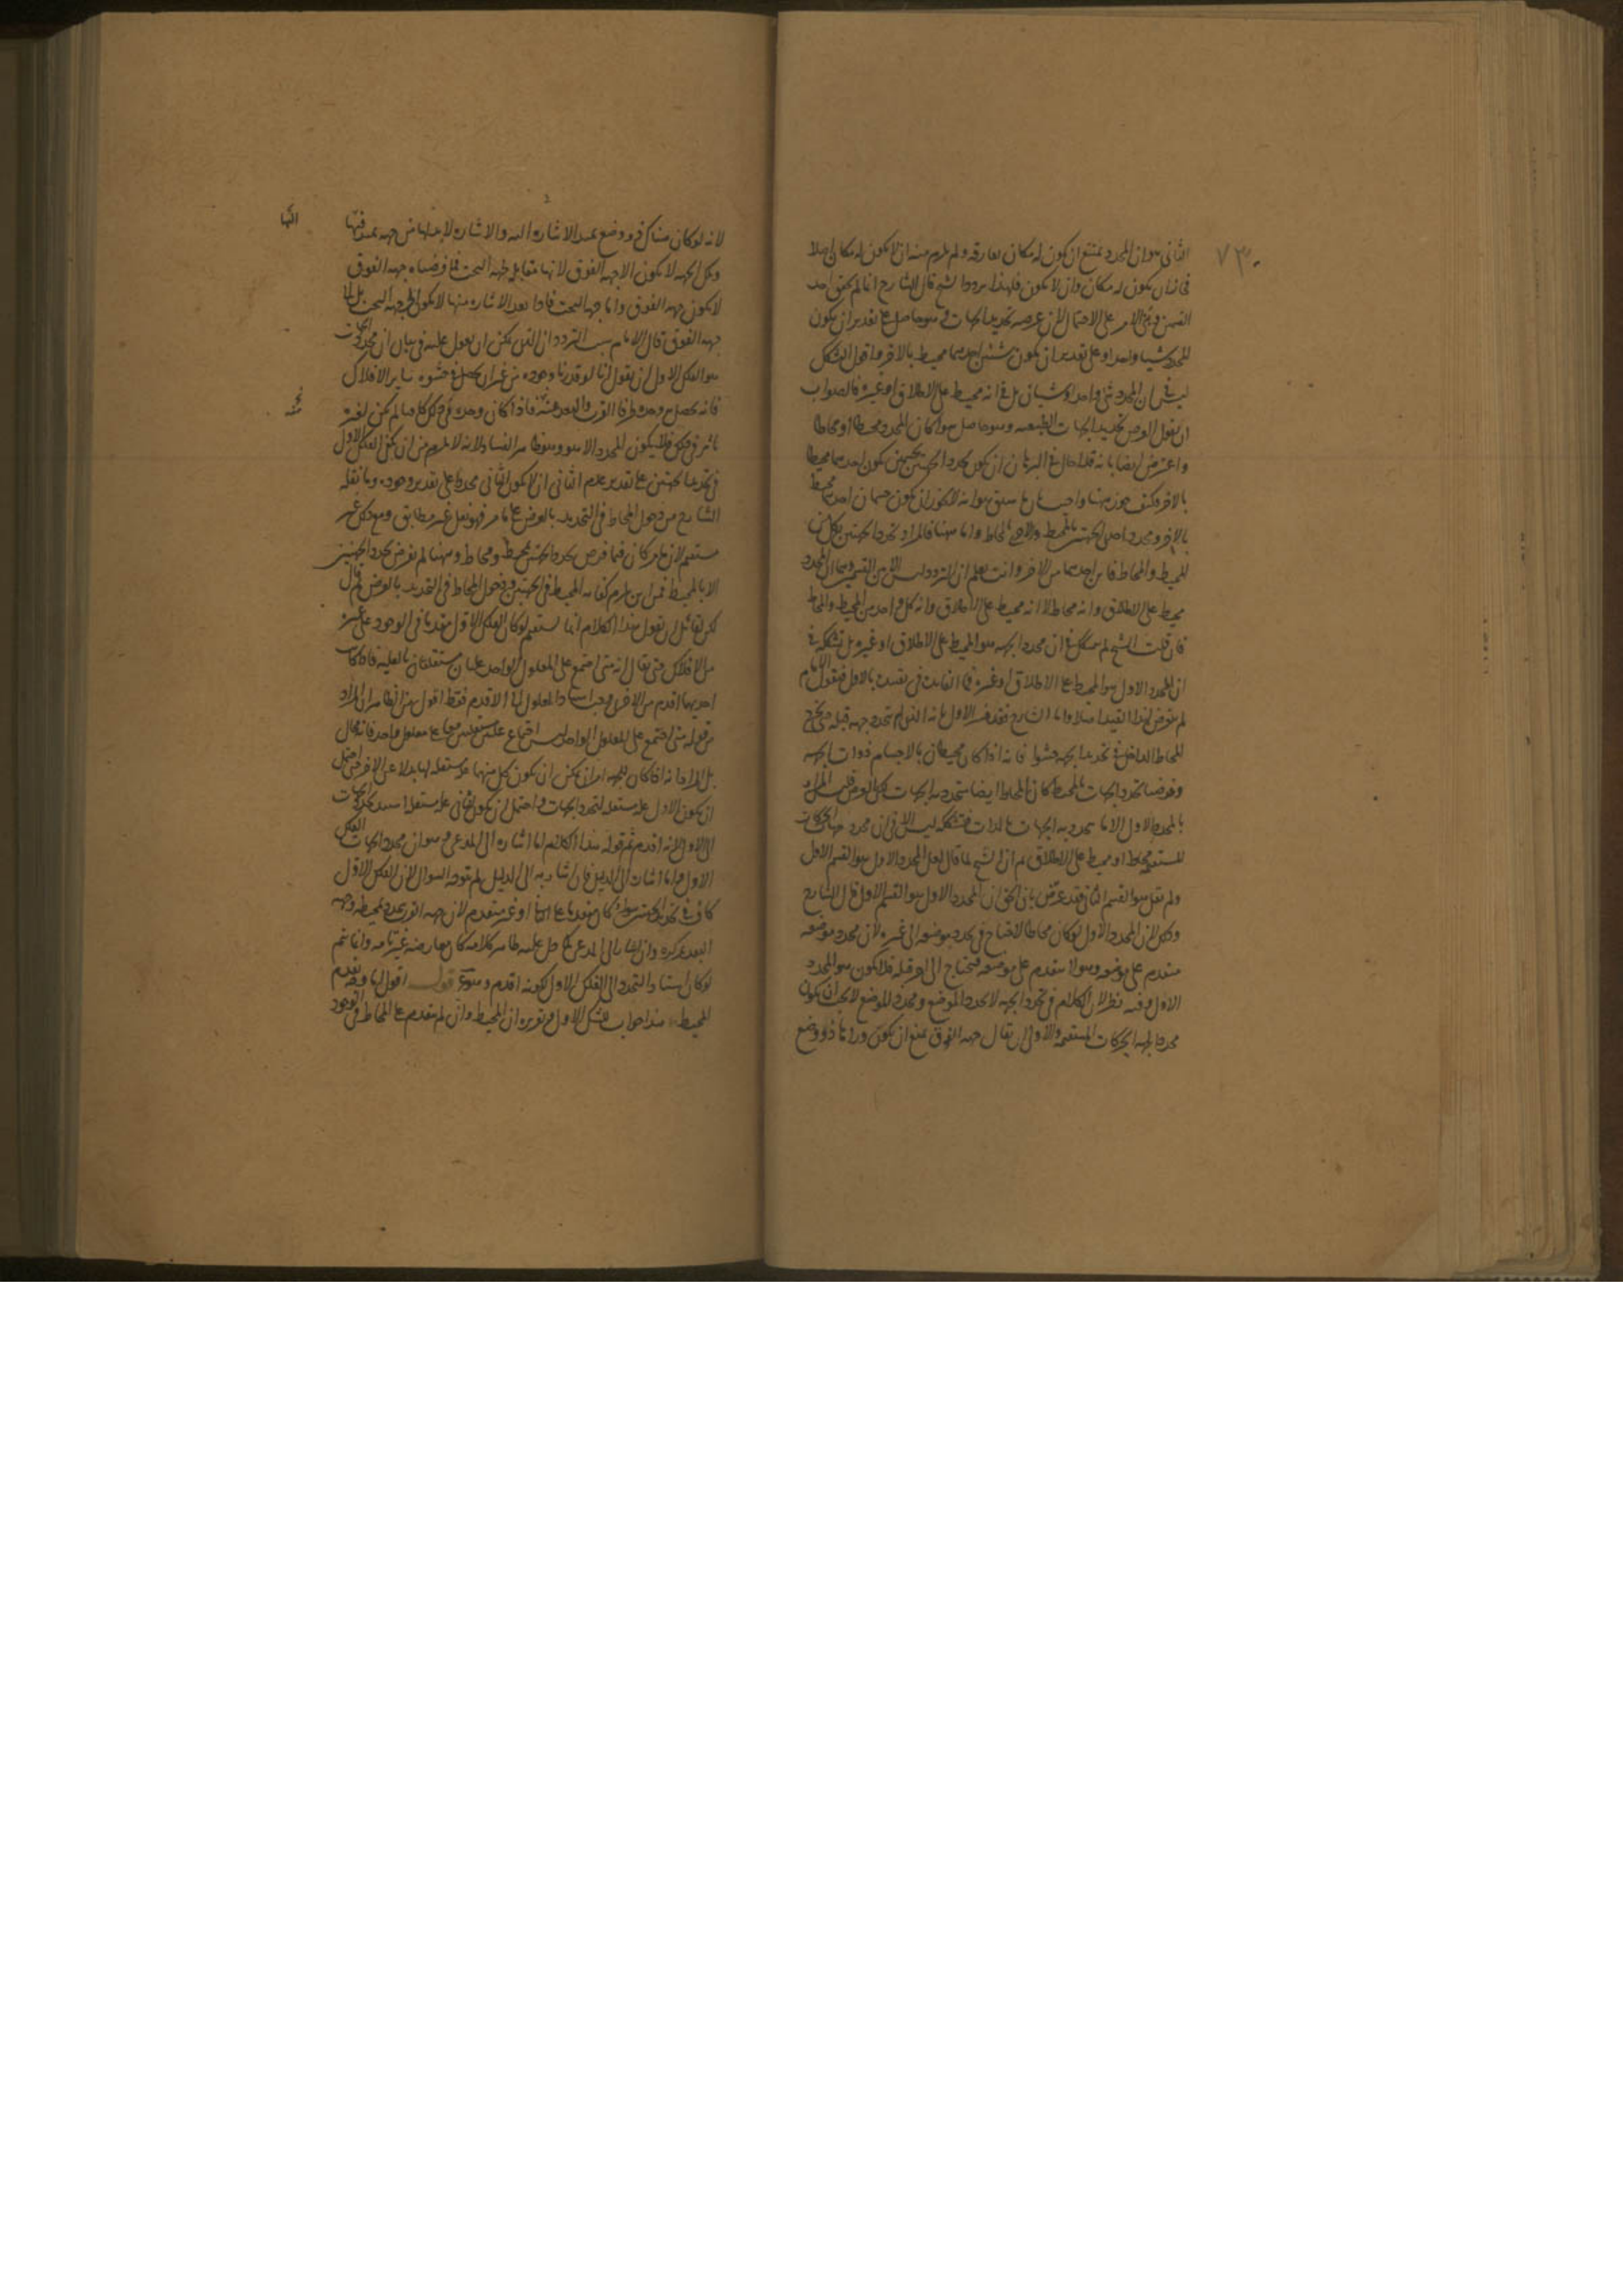 ٧٣
الثانى هو ان المحدد يمتنع ان يكون له مكان يفارقه ولم يلزم منه ان لا يكون له مكان اصلا
فجاز ان يكون له مكان وان لا يكون فلهذا ردد الشيخ قال الشارح انما لم يحقق احد
القسمين وبنى الامر على الاحتمال لان غرضه تحديد الجهات وهو حاصل على تقدير ان يكون
المحدد شيئا واحدا وعلى تقدير ان يكون شيئين احدهما محيط بالآخر واقول الشك
ليس فى ان المحدد شئ واحد او شيئان بل فى انه محيط على الاطلاق او غيره فالصواب
ان يقول الغرض تحديد الجهات الطبيعيه وهو حاصل سواء كان المحدد محيطا او محاطا
واعترض ايضا بانه قد ابطل فى البرهان ان يكون محدد الجهتين بجسمين يكون احدهما محيطا
بالآخر فكيف جوز ههنا واجيب بان ما سبق هو انه لا يجوز ان يكون جسمان احدهما محيط
بالآخر ومحدد احدى الجهتين بالمحيط والاخرى بالمحاط واما ههنا فالمراد تحدد الجهتين بكل من
المحيط والمحاط فاين احدهما من الآخر وانت تعلم ان التردد ليس الا بين القسمين وهما ان المحدد
محيط على الاطلاق وانه محاط لا انه محيط على الاطلاق وانه كل واحد من المحيط والمحاط
فان قلت الشيخ لم يشكك فى ان محدد الجهه هو المحيط على الاطلاق او غيره بل تشككه فى
ان المحدد الاول هو المحيط على الاطلاق او غيره فما الفائدة فى تقييده بالاول فنقول الامام
لم يتعرض لهذا القيد اصلا واما الشارح فقد فسر الاول بانه الذى لم تتحدد جهه قبله حتى يخرج
المحاط الداخل فى تحديد الجهه حشوا فانه اذا كان محيطان بالاجسام ذوات الجهه
وفرضنا تحدد الجهات بالمحيط كان المحاط ايضا يتحدد به الجهات لكن بالعرض فليس المراد
بالمحدد الاول الا ما يتحدد به الجهات بالذات فتشككه ليس الا فى ان محدد جهات الحركات
المستقيمه محاط او محيط على الاطلاق ثم ان الشيخ لما قال لعل المحدد الاول هو القسم الاول
ولم يقل هو القسم الثانى فقد عرّض بان الحق ان المحدد الاول هو القسم الاول قال الشارح
وذلك لان المحدد الاول لو كان محاطا لاحتاج فى تحدد موضعه الى غيره لان محدد موضعه
متقدم على موضعه وهو لا يتقدم على موضعه فيحتاج الى اخر قبله فلا يكون هو المحدد
الاول وفيه نظر لان الكلام فى تحدد الجهه لا تحدد الموضع ومحدد الموضع لا يجب ان يكون
محددا لجهه الحركات المستقيمه والاولى ان يقال جهه الفوق يمتنع ان يكون وراءها ذو وضع
لانه لو كان هناك ذو وضع يمتد الاشاره اليه والاشاره لا بد لها من جهه يمتد فيها
اليها
وتلك الجهه لا يكون الا جهه الفوق لانها مقابله لجهه التحت فما فرضناه جهه الفوق
لا يكون جهه الفوق واما جهه التحت فاذا بعد الاشاره منها لا يكون الى جهه التحت بل الى
جهه الفوق قال الامام سبب التردد ان الذى يمكن ان يعول عليه فى بيان ان محدد الجهات
هو الفلك الاول ان نقول انا لو قدرنا وجوده من غير ان يحصل فى حشوه ساير الافلاك
فانه يحصل به وحده طرفا القرب والبعد عنه فاذا كان وحده فى ذلك كافيا لم يكن لغيره
تاثير فى ذلك فلا يكون المحدد الا هو وهو ظاهر الفساد لانه لا يلزم من ان يكفى الفلك الاول
فى تحديد الجهتين على تقدير عدم الثانى ان لا يكون الثانى محددا على تقدير وجوده وما نقله
الشارح من دخول المحاط فى التحديد بالعرض على ما مر فهو نقل غير مطابق ومع ذلك غير
مستقيم لان ما مر كان فيما فرض تحدد الجهتين بمحيط ومحاط وههنا لم نفرض تحدد الجهتين
الا بالمحيط فمن اين يلزم كفايه المحيط فى الجهتين ودخول المحاط فى التحديد بالعرض ثم قال
لكن لقائل ان يقول هذا الكلام انما يستقيم لو كان الفلك الاول متقدما فى الوجود على غيره
من الافلاك حتى يقال انه متى اجتمع على المعلول الواحد علتان مستقلتان بالعليه فاذا كانت
احديهما اقدم من الاخرى وجب استناد المعلول الى الاقدم فقط اقول هذا لظاهر ان المراد
من قوله متى اجتمع على المعلول الواحد ليس اجتماع علتين مستقلتين معا على معلول واحد فانه محال
بل المراد انه اذا كان للجهه امران يمكن ان يكون كل منهما عله مستقله لها بدلا عن الاخر حتى احتمل
ان يكون الاول عله مستقله لتحدد الجهات واحتمل ان يكون الثانى عله مستقله استند تحدد الجهات
الى الاول لانه اقدم ثم قوله هذا الكلام اما اشاره الى المدعى وهو ان محدد الجهات الفلك
الاول واما اشاره الى الدليل فان اشار به الى الدليل لم يتوجه السؤال لان الفلك الاول
كاف فى تحديد الجهتين سواء كان متقدما على الثانى او غير متقدم لان جهه القرب يتحدد بمحيطه وجهه
البعد بمركزه وان اشار الى المدعى كما دل عليه ظاهر كلامه كان معارضه غير تامه وانما يتم
لو كان استناد التحدد الى الفلك الاول لكونه اقدم وهو ممنوع قوله اقول اما وجه تقدم
المحيط هذا جواب لشك الاول وتقريره ان المحيط وان لم يتقدم على المحاط فى الوجود